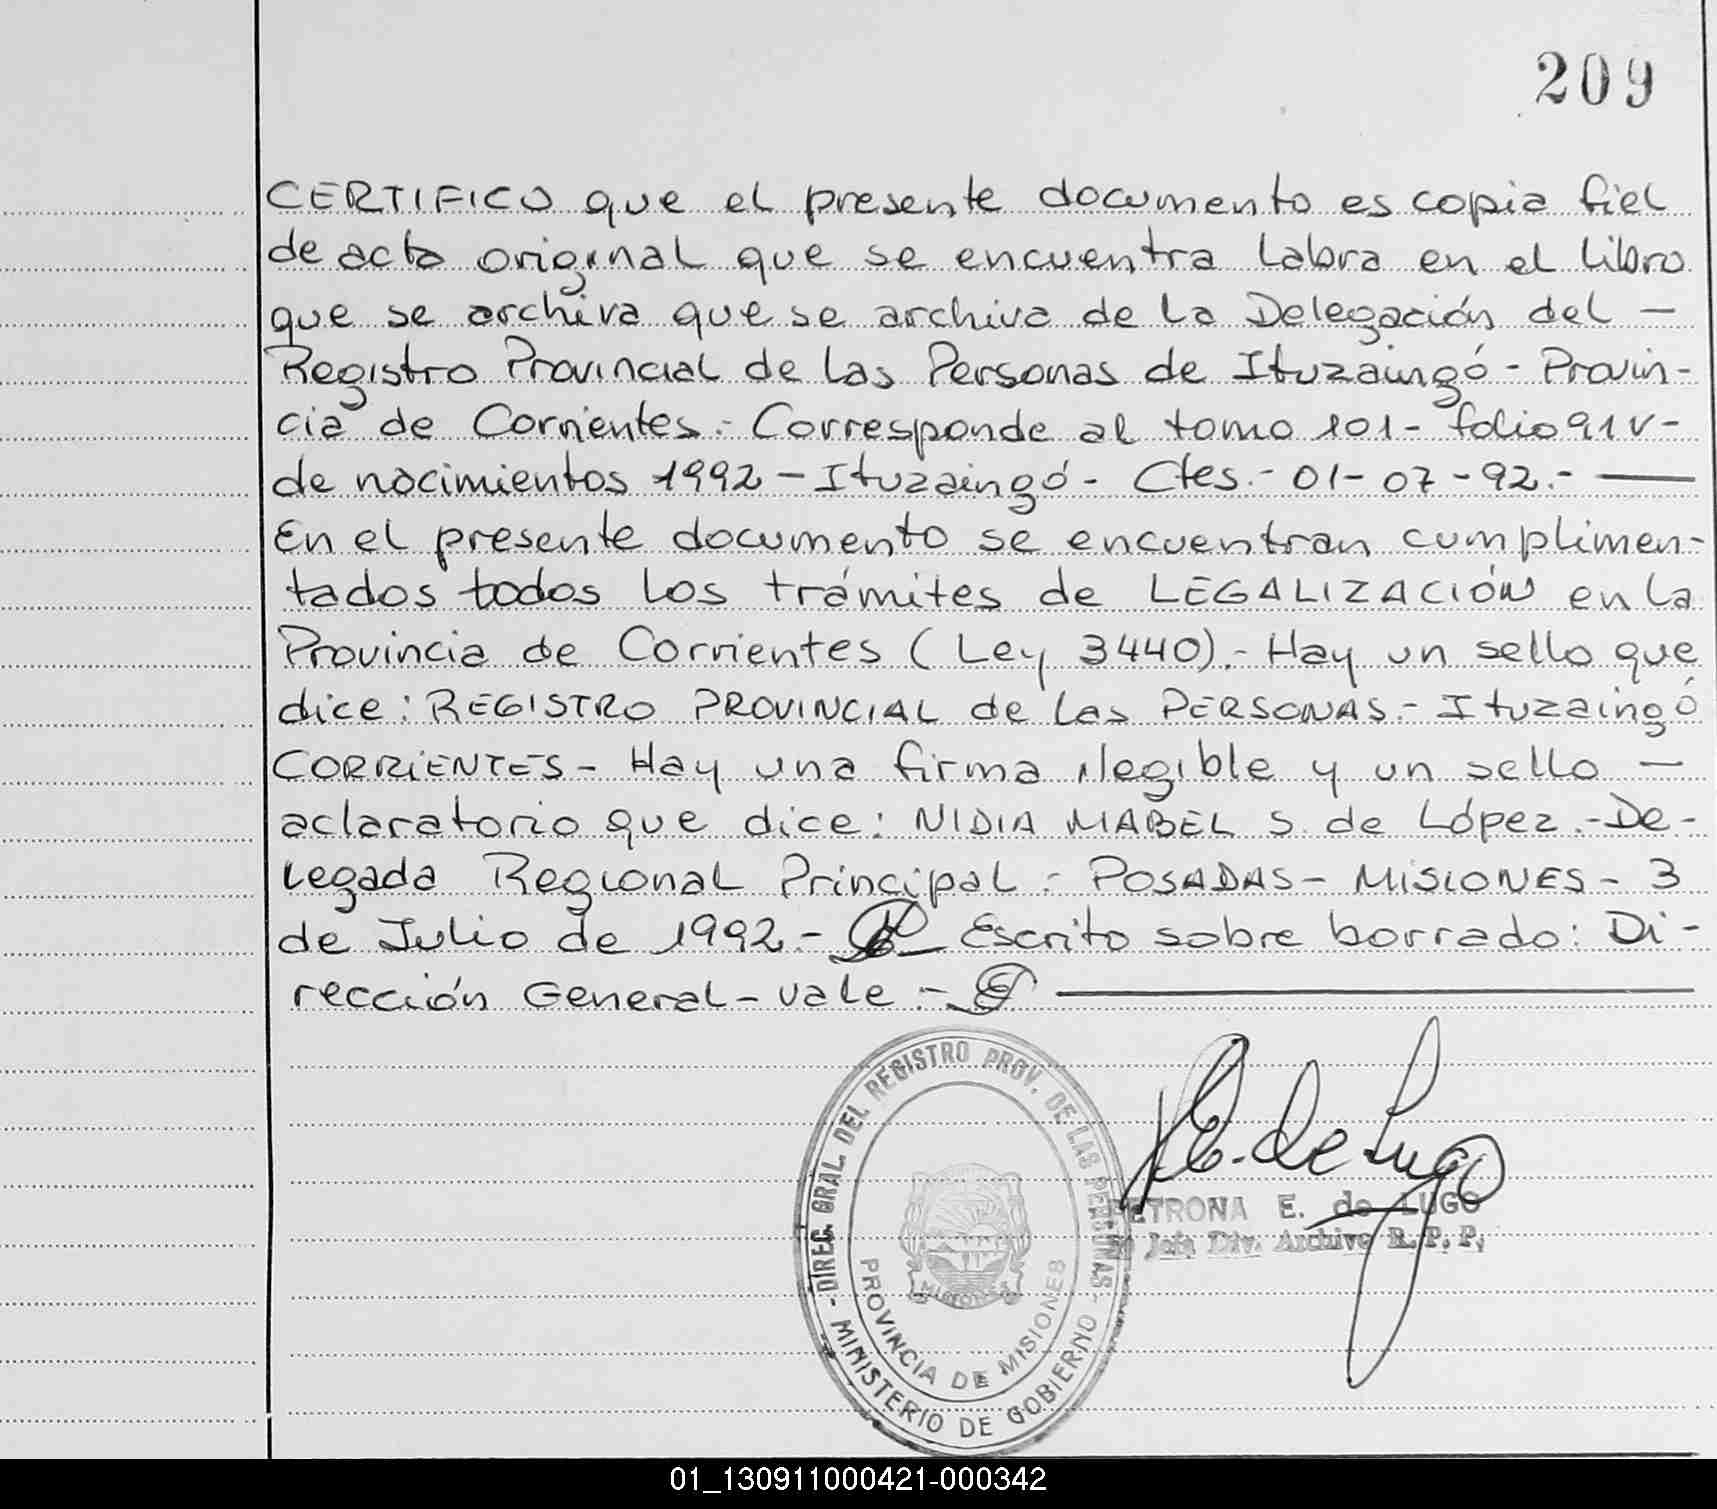 209
CERTIFICO que el presente documento es copia fiel
de acta original que se encuentra labra en el libro
que se archiva que se archiva de la Delegación del —
Registro Provincial de las Personas de Ituzaingó - Provin-
cia de Corrientes.- Corresponde al tomo 101- folio 91v-
de nacimientos 1992 - Ituzaingó - Ctes.- 01-07-92.- —
En el presente documento se encuentran cumplimen-
tados todos los trámites de LEGALIZACIÓN en la
Provincia de Corrientes (Ley 3440).- Hay un sello que
dice: REGISTRO PROVINCIAL de las PERSONAS.- Ituzaingó
CORRIENTES - Hay una firma ilegible y un sello —
aclaratorio que dice: NIDIA MABEL S. de López.- De-
legada Regional Principal.- POSADAS - MISIONES - 3
de Julio de 1992.- Escrito sobre borrado: Di-
rección General - vale.-
- DIREC. GRAL. DEL REGISTRO PROV. DE LAS PERSONAS -
MINISTERIO DE GOBIERNO
PROVINCIA DE MISIONES
MISIONES
E. de Lugo
PETRONA E. de LUGO
Jefa Div. Archivo R. P. P.
01_130911000421-000342